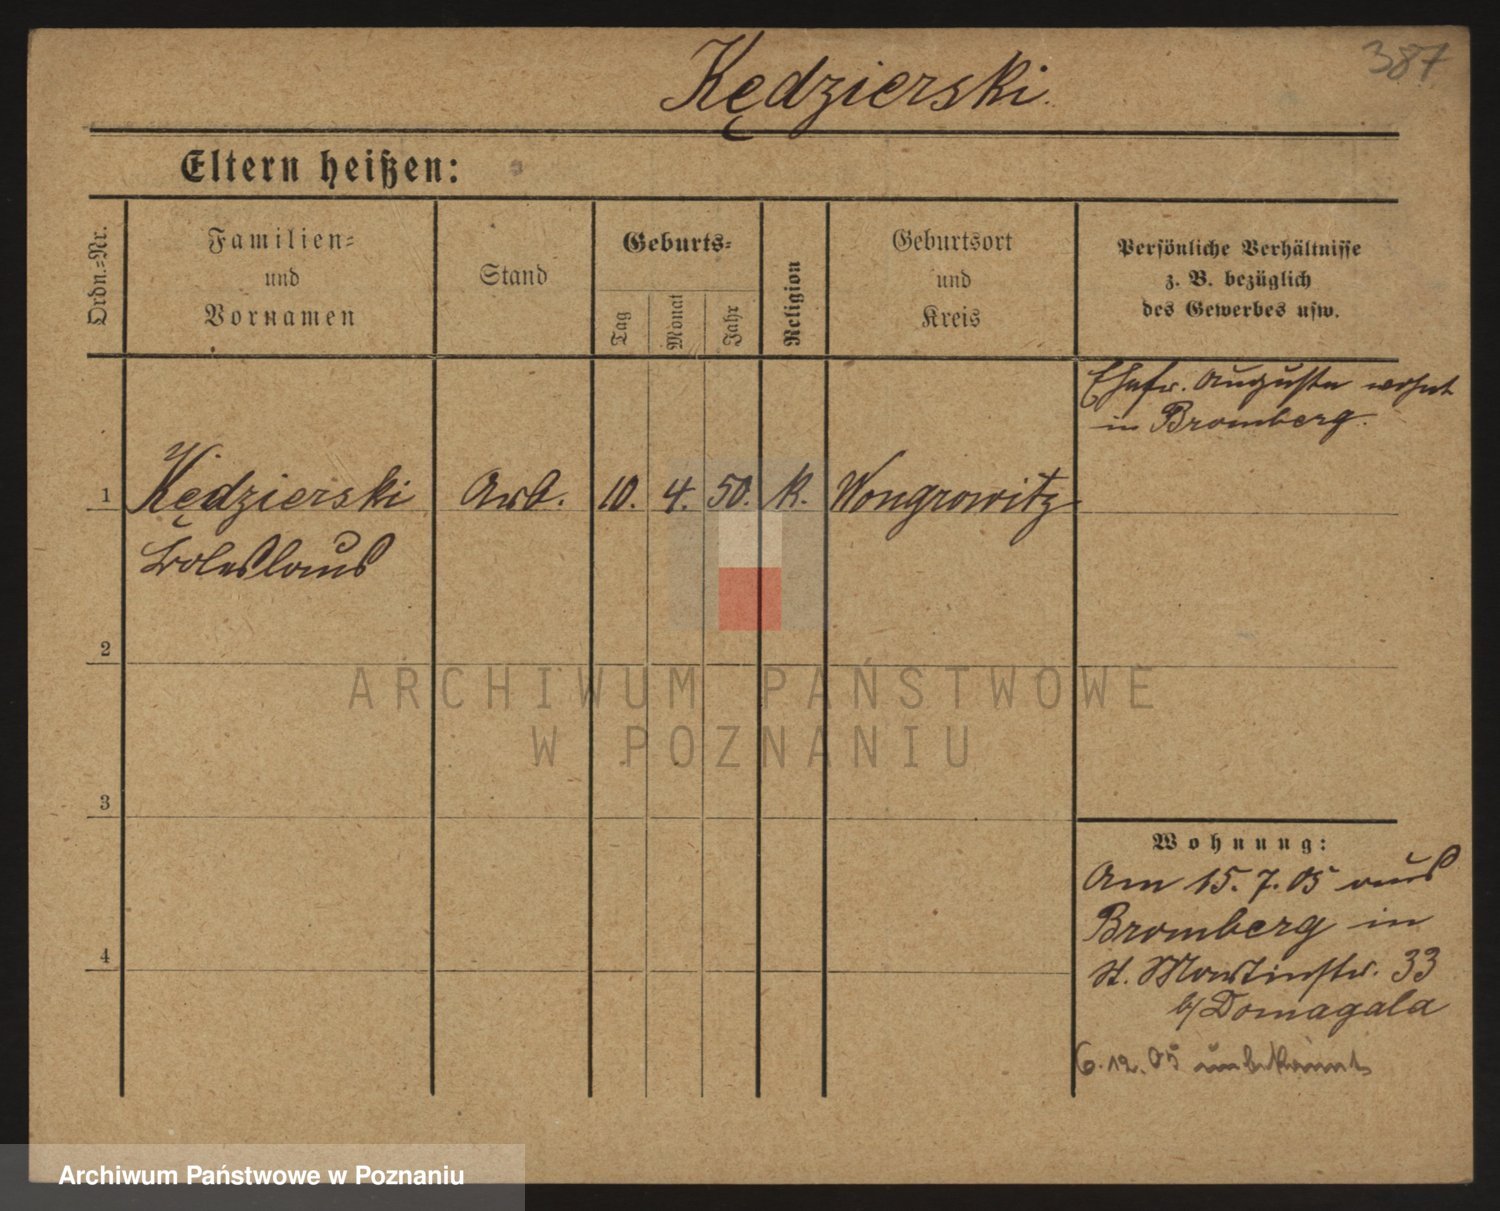 387
Kędzierski.
Eltern heißen:
Ordn.=Nr.
Familien=
und
Vornamen
Stand
Geburts=
Tag
Monat
Jahr
Religion
Geburtsort
und
Kreis
Persönliche Verhältnisse
z. B. bezüglich
des Gewerbes usw.
Ehefr. Auguste wohnt
in Bromberg.
1 Kędzierski Arb. 10. 4. 50. k. Wongrowitz
Boleslaus
2
3
4
Wohnung:
Am 15. 7. 05 aus
Bromberg in
St. Martinstr. 33
b/ Domagala
6. 12. 05 unbekannt
ARCHIWUM PAŃSTWOWE
W POZNANIU
Archiwum Państwowe w Poznaniu